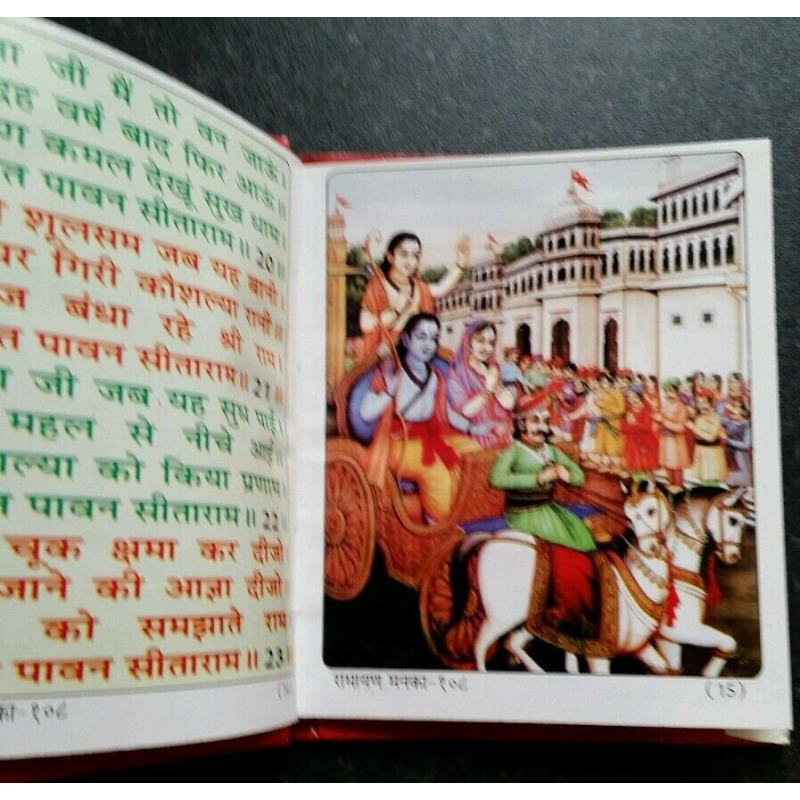 जी मैं तो वन जाऊं।
वर्ष बाद फिर आऊं॥
कमल देखूं सुख धाम।
पावन सीताराम॥ 20॥
शूलसम जब यह बानी।
गिरी कौशल्या रानी॥
बंधा रहे श्री राम।
पावन सीताराम॥ 21॥
जी जब यह सुध पाई।
महल से नीचे आई॥
को किया प्रणाम।
पावन सीताराम॥ 22॥
चूक क्षमा कर दीजो।
जाने की आज्ञा दीजो॥
को समझाते राम।
पावन सीताराम॥ 23॥
-१०८
रामायण मनका-१०८
(15)